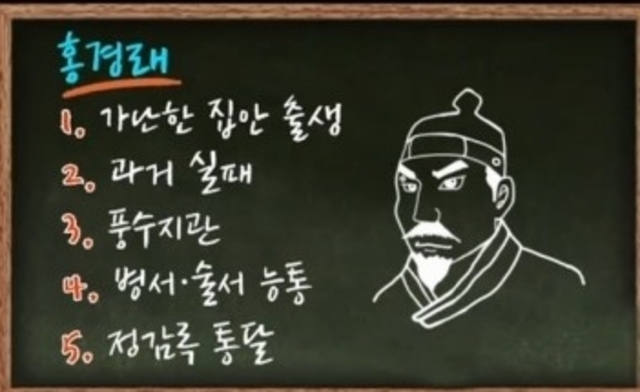 홍경래
1. 가난한 집안 출생
2. 과거 실패
3. 풍수지관
4. 병서·술서 능통
5. 정감록 통달